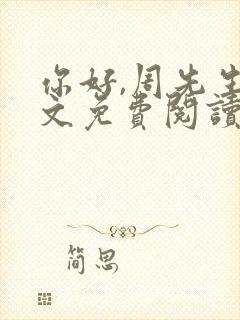 你好,周先生
文免费阅读
简思